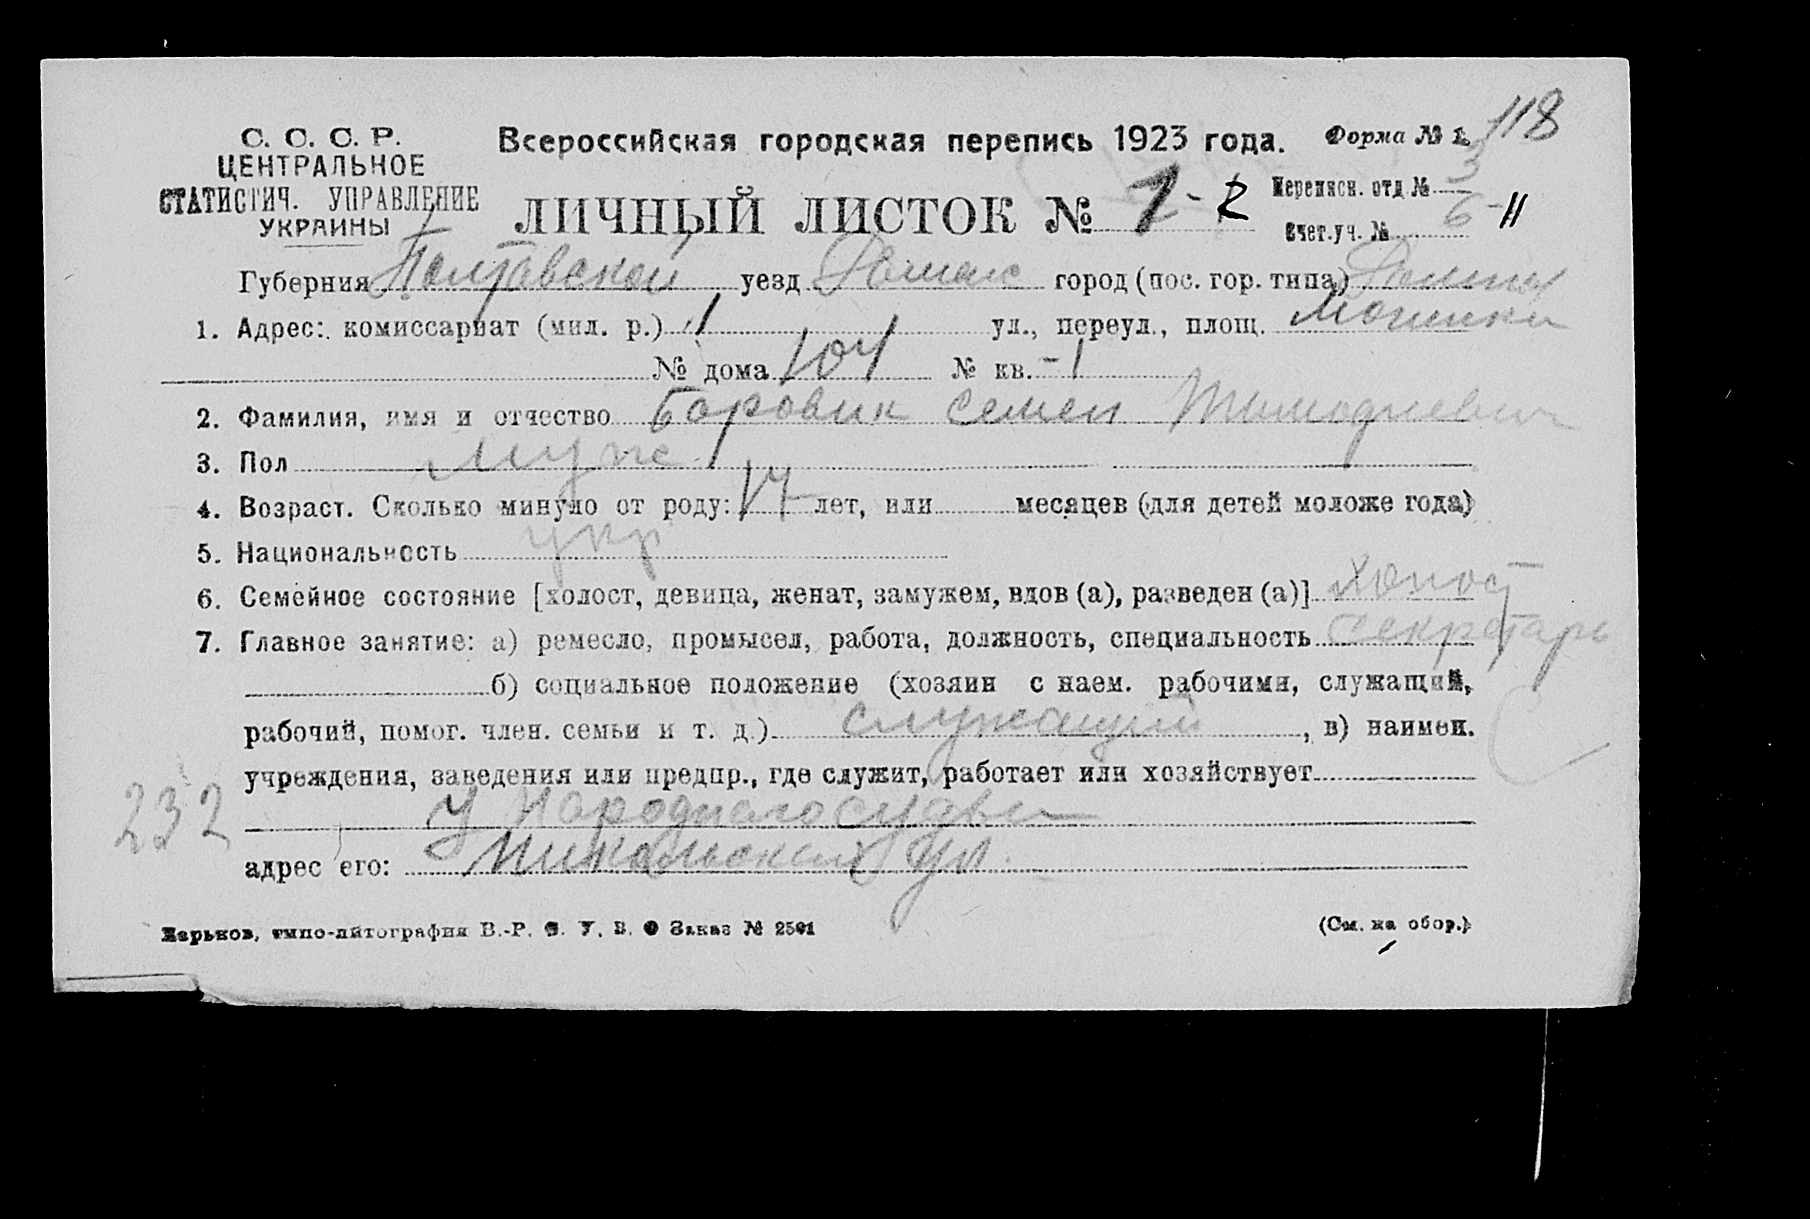 118
С. С. С. Р.
ЦЕНТРАЛЬНОЕ
СТАТИСТИЧ. УПРАВЛЕНИЕ
УКРАИНЫ
Всероссийская городская перепись 1923 года. Форма № 1.
ЛИЧНЫЙ ЛИСТОК № 1-2 Переписн. отд. № 3
Счет. уч. № 6-11
Губерния Полтавской уезд город (пос. гор. типа)
1. Адрес: комиссариат (мил. р.) 1 ул., переул., площ.
№ дома 104 № кв. -1
2. Фамилия, имя и отчество Боровик Семен
3. Пол муж
4. Возраст. Сколько минуло от роду: 17 лет, или месяцев (для детей моложе года)
5. Национальность укр
6. Семейное состояние [холост, девица, женат, замужем, вдов (а), разведен (а)] холост
7. Главное занятие: а) ремесло, промысел, работа, должность, специальность секретарь
б) социальное положение (хозяин с наем. рабочими, служащий,
рабочий, помог. член. семьи и т. д.) служащий, в) наимен.
учреждения, заведения или предпр., где служит, работает или хозяйствует
У Народного судьи
232
адрес его: Никольская ул.
Харьков, типо-литография В.-Р. С. У. В. О Заказ № 2501 (См. на обор.)